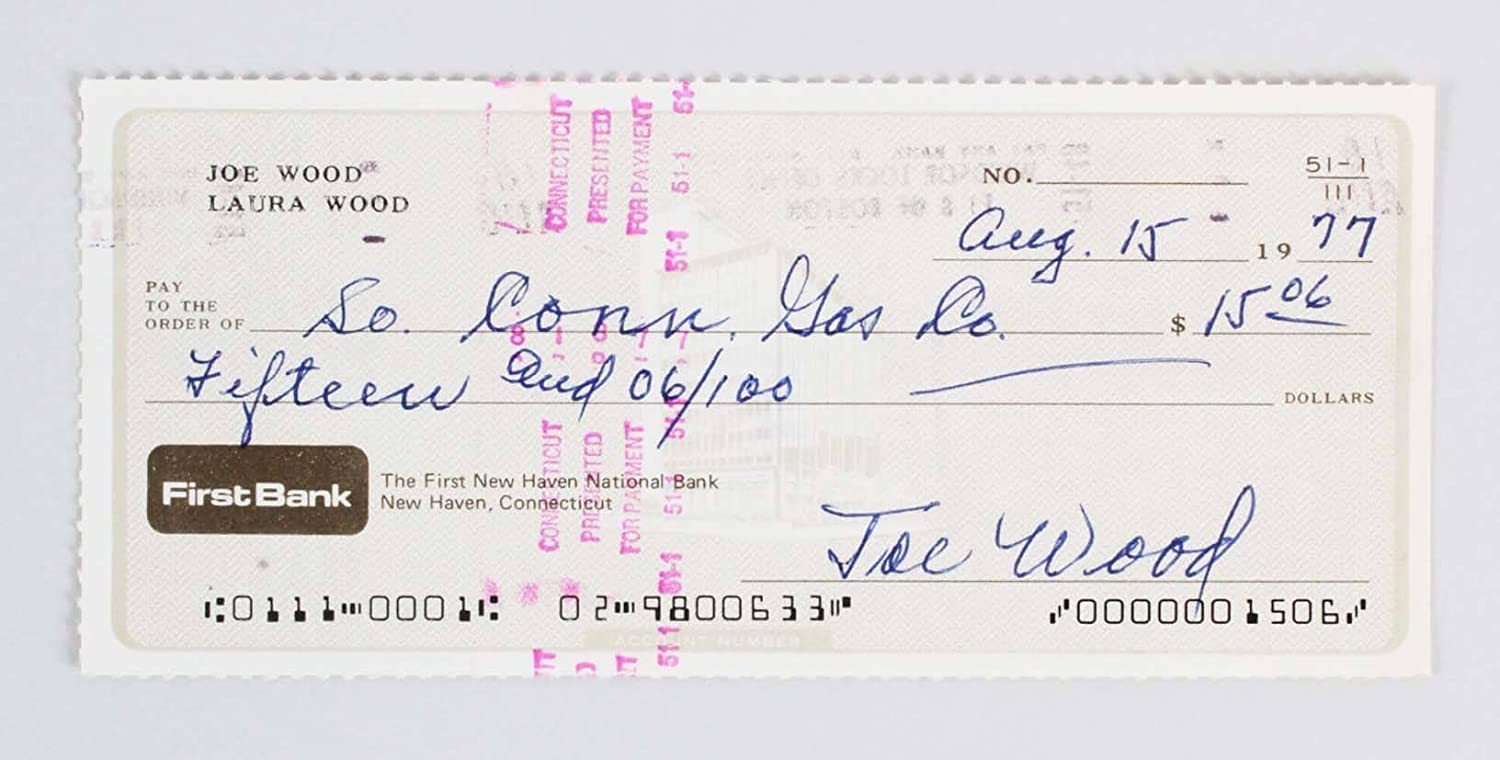 JOE WOOD
LAURA WOOD
NO.
51-1
111
Aug. 15 1977
PAY
TO THE
ORDER OF So. Conn. Gas Co. $ 15 06
Fifteen and 06/100 DOLLARS
First Bank
The First New Haven National Bank
New Haven, Connecticut
Joe Wood
0111 0001 02 9800633 0000001506
ACCOUNT NUMBER
CONNECTICUT
PRESENTED
FOR PAYMENT
51-1 51-1 51-1
CONNECTICUT
PRESENTED
FOR PAYMENT
51-1 51-1 51-1